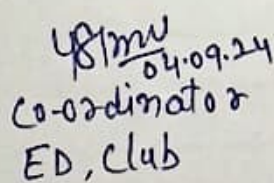 04.09.24
Co-ordinator
ED, Club